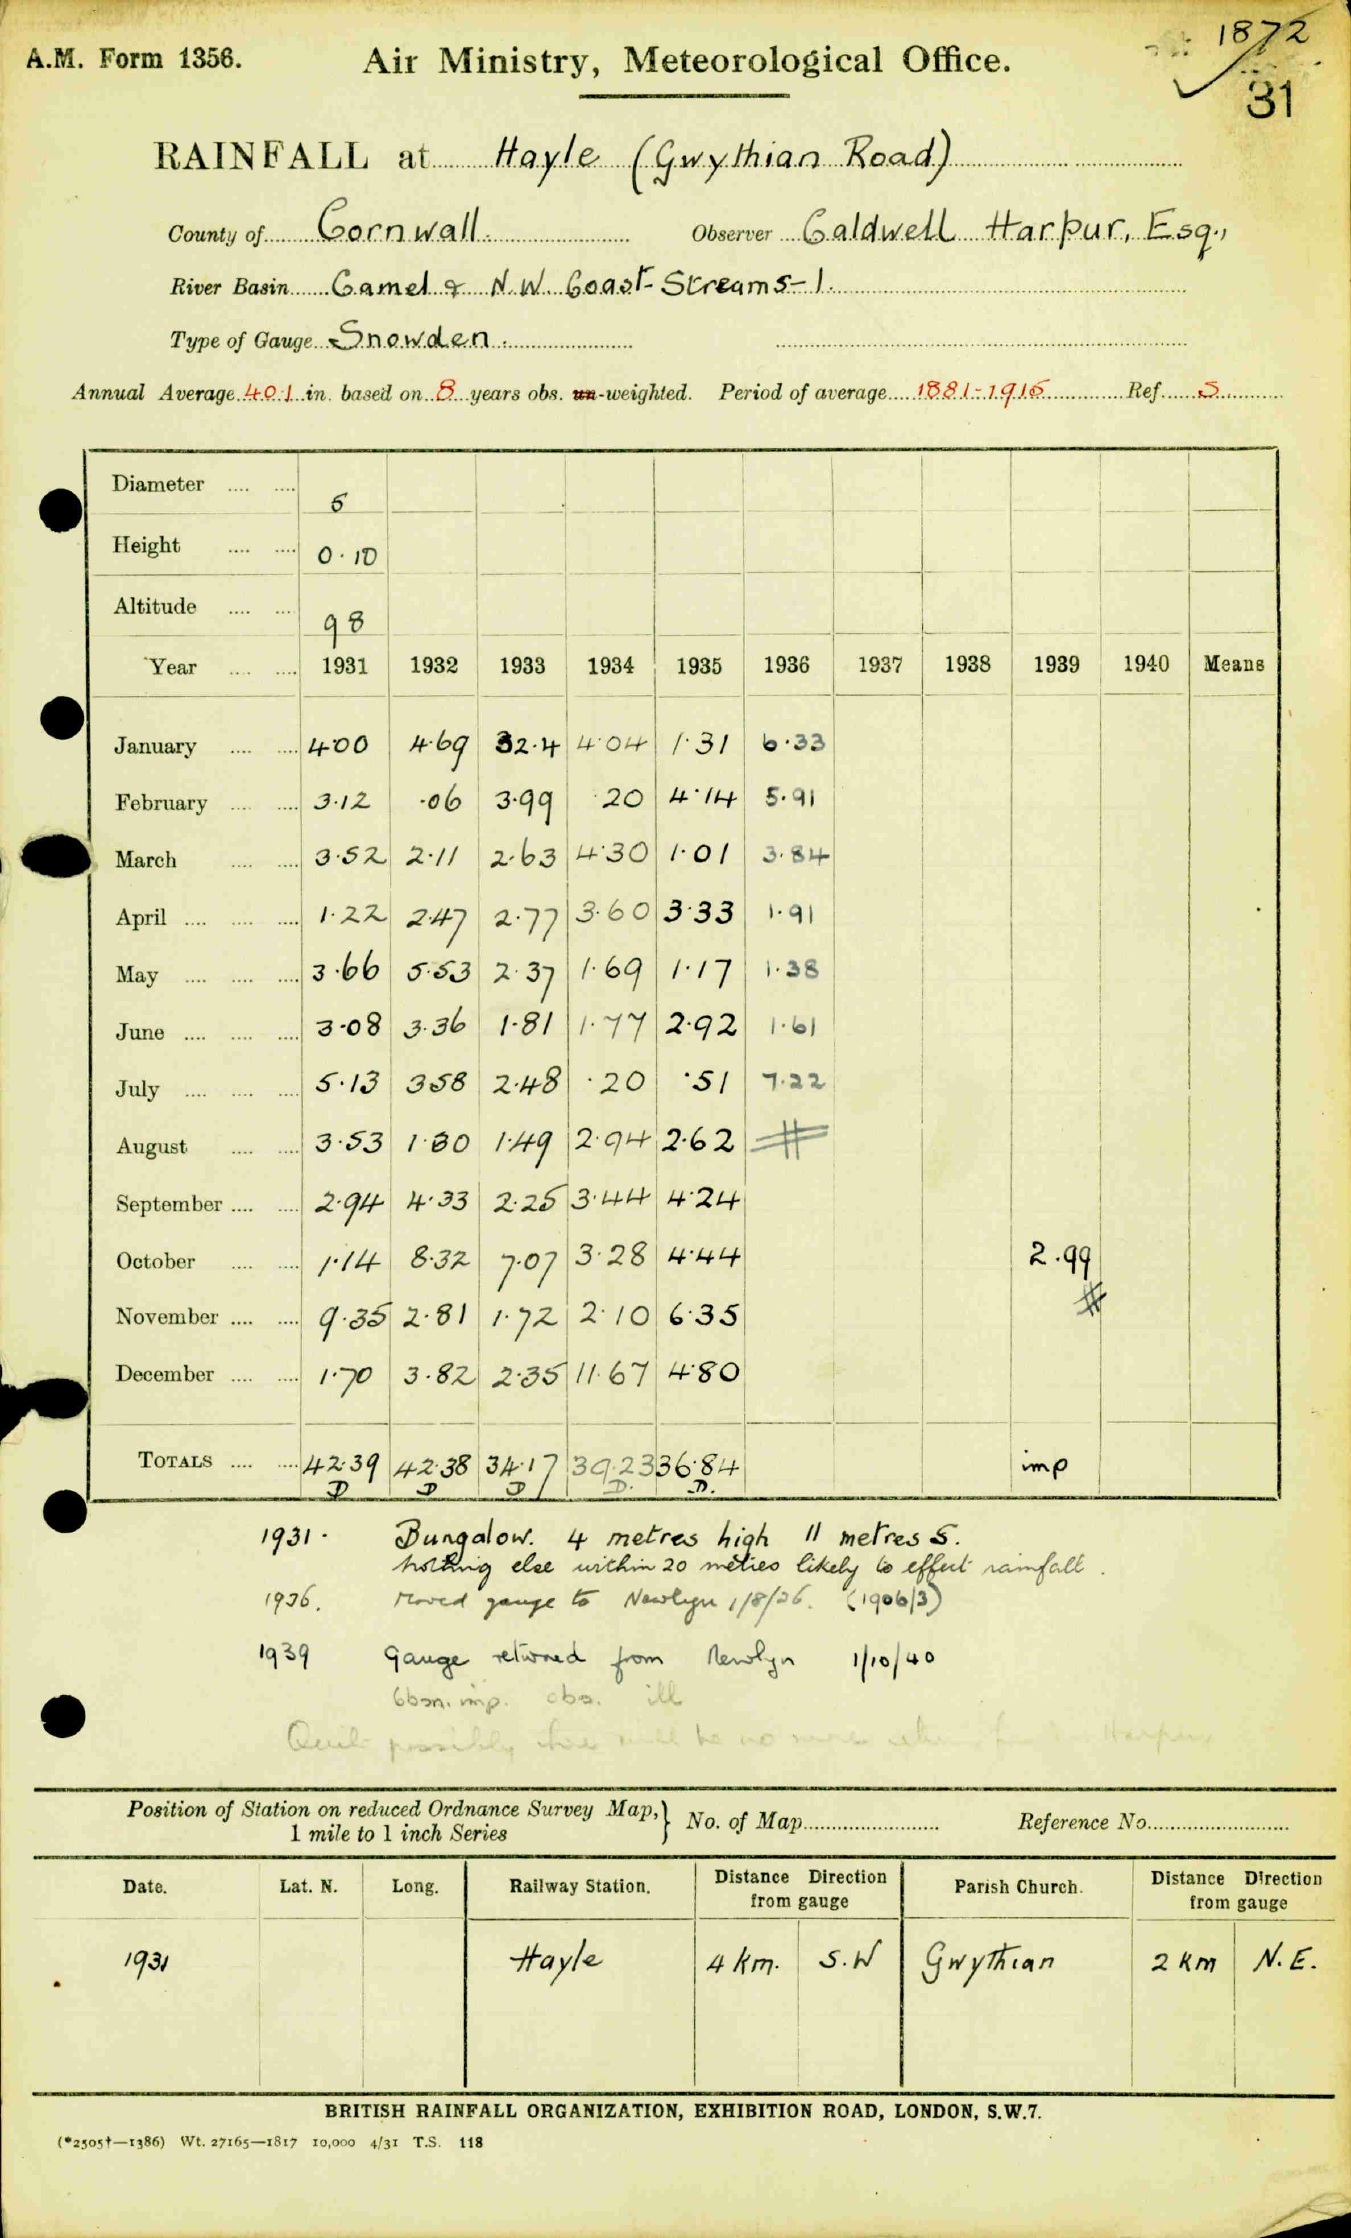 1872
A.M. Form 1356. Air Ministry, Meteorological Office. 31
RAINFALL at Hayle (Gwythian Road)
County of Cornwall. Observer Caldwell Harpur, Esq.,
River Basin Camel & N.W. Coast Streams-1.
Type of Gauge Snowden.
Annual Average 40.1 in. based on 8 years obs. un-weighted. Period of average 1881-1915 Ref. S.
Diameter .... .... 5
Height .... .... 0.10
Altitude .... .... 98
Year .... .... 1931 1932 1933 1934 1935 1936 1937 1938 1939 1940 Means
January .... .... 4.00 4.69 32.4 4.04 1.31 6.33
February .... .... 3.12 .06 3.99 .20 4.14 5.91
March .... .... 3.52 2.11 2.63 4.30 1.01 3.84
April .... .... .... 1.22 2.47 2.77 3.60 3.33 1.91
May .... .... .... 3.66 5.53 2.37 1.69 1.17 1.38
June .... .... .... 3.08 3.36 1.81 1.77 2.92 1.61
July .... .... .... 5.13 3.58 2.48 .20 .51 7.22
August .... .... 3.53 1.30 1.49 2.94 2.62 #
September .... .... 2.94 4.33 2.25 3.44 4.24
October .... .... 1.14 8.32 7.07 3.28 4.44 2.99
#
November .... .... 9.35 2.81 1.72 2.10 6.35
December .... .... 1.70 3.82 2.35 11.67 4.80
TOTALS .... .... 42.39 42.38 34.17 39.23 36.84 imp
D D D D. D.
1931. Bungalow. 4 metres high 11 metres S.
Nothing else within 20 metres likely to effect rainfall.
1936. Moved gauge to Newlyn 1/8/36. (1906/3)
1939 Gauge returned from Newlyn 1/10/40
Obsn. imp. obs. ill
Quite possibly there will be no more
Position of Station on reduced Ordnance Survey Map, } No. of Map Reference No.
1 mile to 1 inch Series
Date. Lat. N. Long. Railway Station. Distance Direction from gauge Parish Church. Distance Direction from gauge
1931 Hayle 4 km. S.W Gwythian 2 km N.E.
BRITISH RAINFALL ORGANIZATION, EXHIBITION ROAD, LONDON, S.W.7.
(*2505†—1386) Wt. 27165—1817 10,000 4/31 T.S. 118